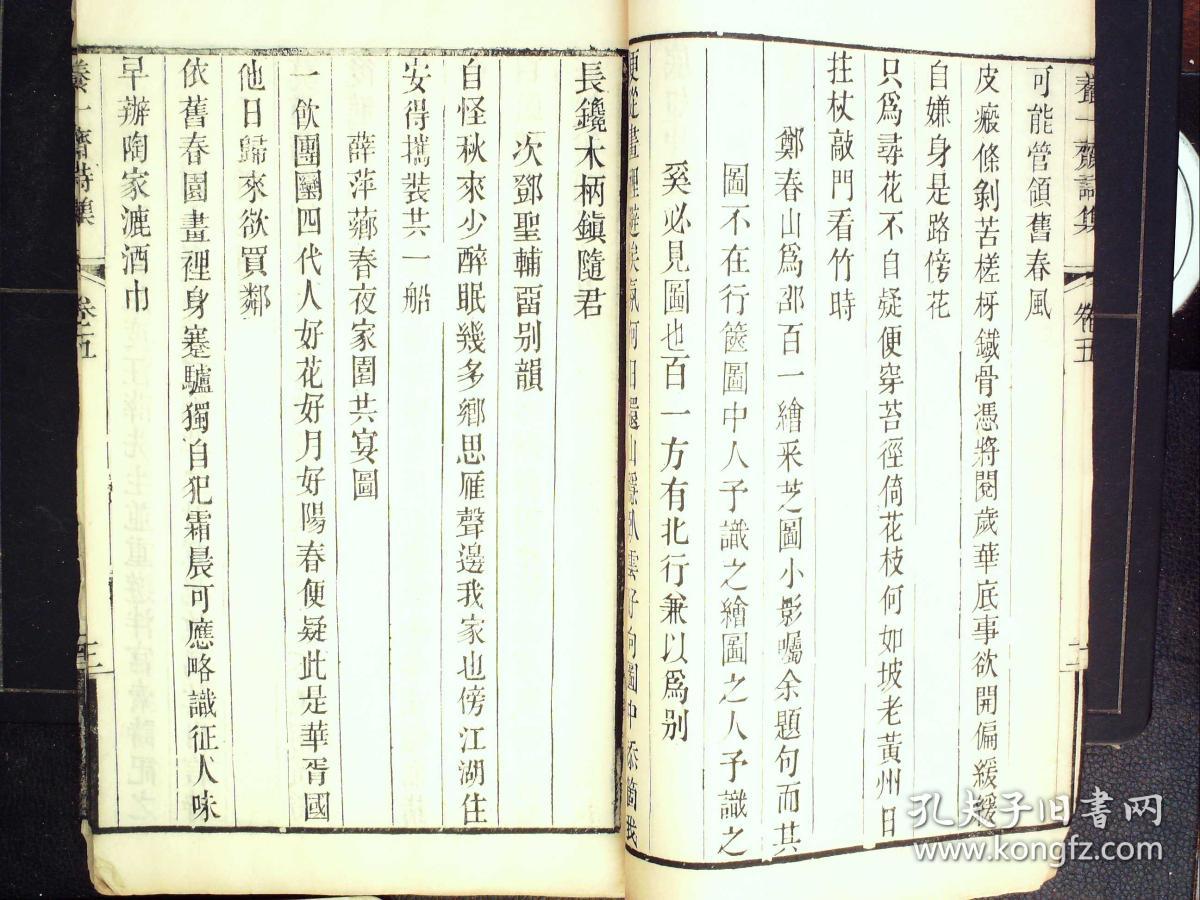 養一齋詩集 卷五 二
可能管領舊春風
皮瘢條剝苦槎枒鐵骨憑將閱歲華底事欲開偏緩緩
自嫌身是路傍花
只爲尋花不自疑便穿苔徑倚花枝何如坡老黃州日
拄杖敲門看竹時
鄭春山爲邵百一繪采芝圖小影囑余題句而其
圖不在行篋圖中人予識之繪圖之人予識之
奚必見圖也百一方有北行兼以爲別
便從畫裡避埃氛何日還山臥白雲好向圖中添箇我
長鑱木柄鎮隨君
次鄧聖輔畱别韻
自怪秋來少醉眠幾多鄉思雁聲邊我家也傍江湖住
安得攜裝共一船
薛萍薌春夜家圍共宴圖
一飲團圞四代人好花好月好陽春便疑此是華胥國
他日歸來欲買鄰
依舊春園畫裡身蹇驢獨自犯霜晨可應略識征人味
早辦陶家漉酒巾
養一齋詩集 卷之五 三
孔夫子旧书网
www.kongfz.com